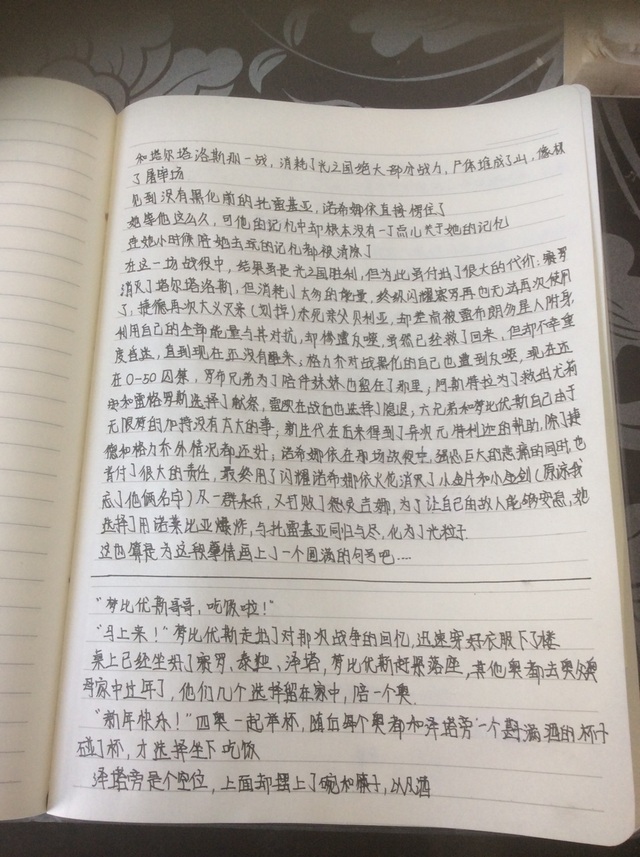 和塔尔塔洛斯那一战，消耗了光之国绝大部分战力，尸体堆成了山，像极
了屠宰场
见到没有黑化前的托雷基亚，诺希娜依直接愣住了
她等他这么久，可他的记忆中却根本没有一丁点儿关于她的记忆
连她小时候陪她去玩的记忆都被清除了
在这一场战役中，结果虽是光之国胜利，但为此受付出了很大的代价：赛罗
消灭了塔尔塔洛斯，但消耗了太多的能量，终极闪耀赛罗再也无法再次使用
了，捷德再次大义灭亲（划掉）杀死亲父贝利亚，却差点被雷布朗多星人附身，
利用自己的全部能量与其对抗，却惨遭反噬，虽然已经救了回来，但却不幸重
度昏迷，直到现在还没有醒来；格力乔对战黑化的自己也遭到反噬，现在还
在O-50闭禁，罗布兄弟为了陪伴妹妹也留在了那里，阿斯特拉为了救出尤莉
安和雷格罗斯选择了献祭，雷欧在战后也选择了隐退，六兄弟和梦比优斯自己由于
无限梦的加持没有太大的事，新生代在后来得到了异次元特利迦的帮助，除了捷
德和格力乔外情况都还好；诺希娜依在那场战役中，强忍巨大的悲痛的同时，也
背付了很大的责任，最终用了闪耀诺希娜依火花消灭了小金片和小金剑（原谅我
忘了他俩名字）及一群杂兵，又打败了想灵吉娜，为了让自己的故人能够安息，她
选择了用诺莱比亚爆炸，与托雷基亚同归与尽，化为了光粒子
这也算是为这段孽情画上了一个圆满的句号吧....
“梦比优斯哥哥，吃饭啦！”
“马上来！”梦比优斯走出了对那次战争的回忆，迅速穿好衣服下了楼
桌上已经坐好了赛罗、泰迦、泽塔，梦比优斯赶紧落座，其他奥都去奥父奥
哥家中过年了，他们几个选择留在家中，陪一个奥
“新年快乐！”四奥一起举杯，随后每个奥都和泽塔旁一个斟满酒的杯子
碰了杯，才选择坐下吃饭
泽塔旁是个空位，上面却摆上了碗和筷子，以及酒